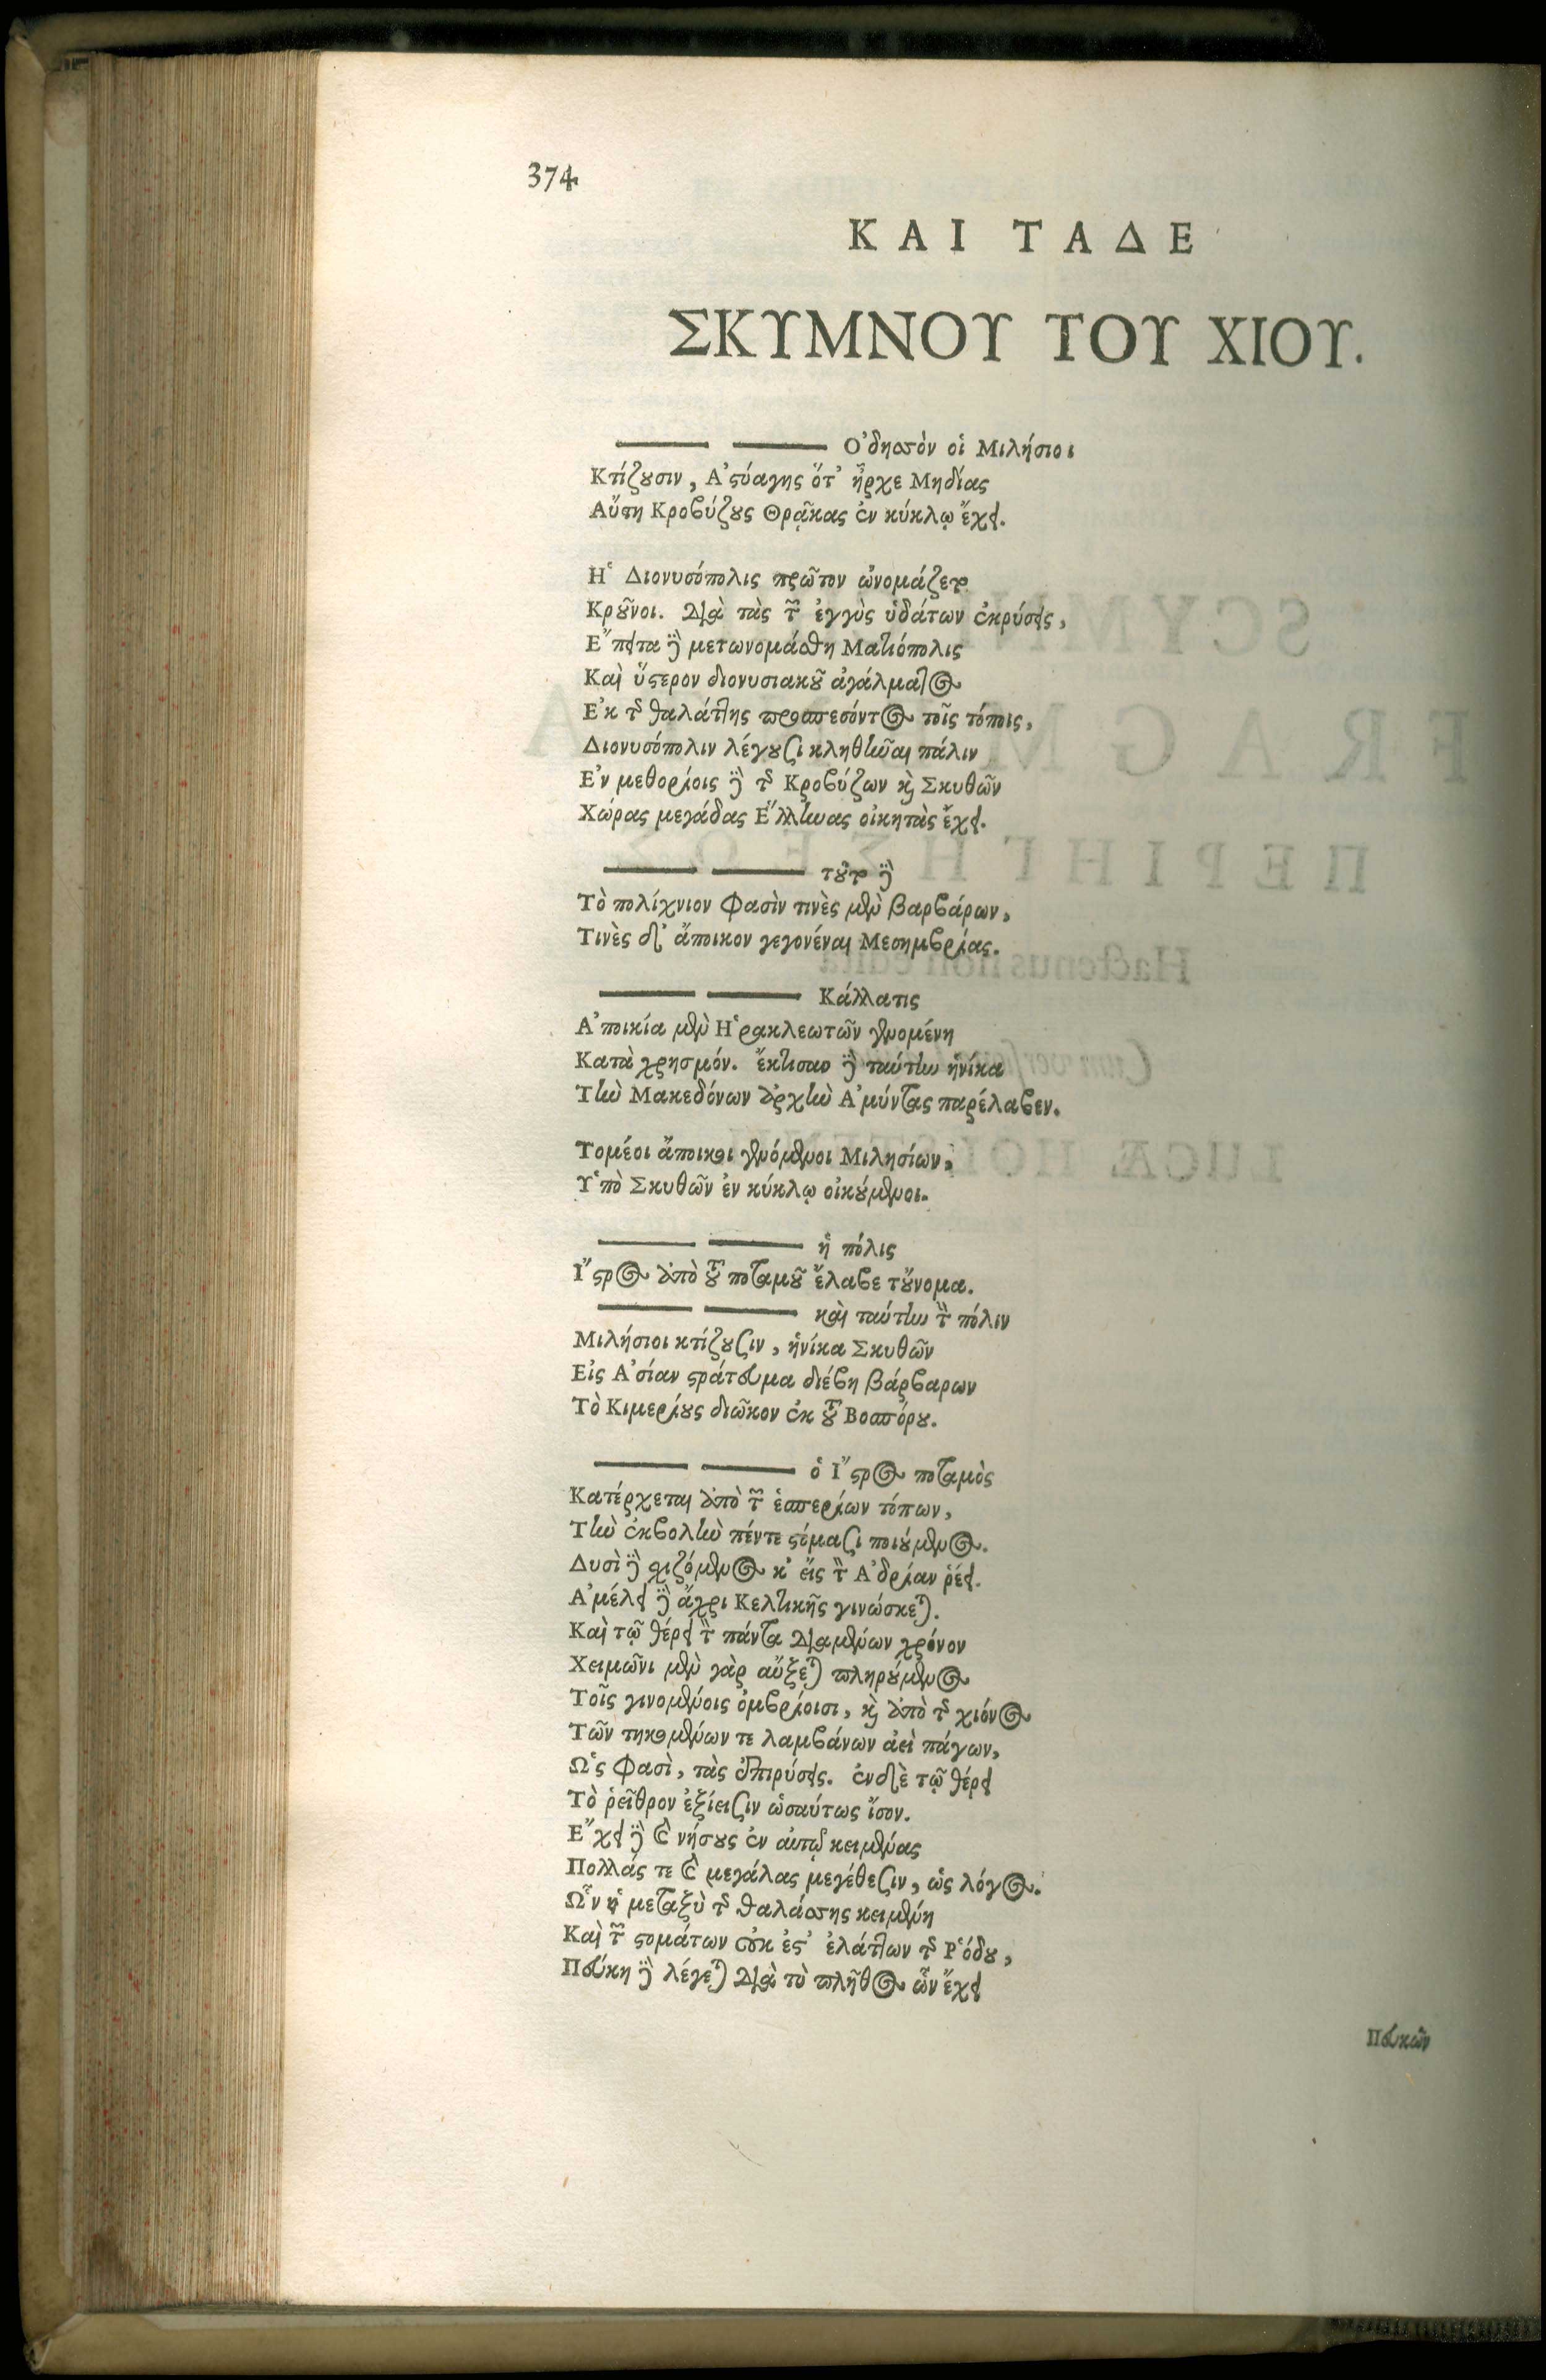 374
ΚΑΙ ΤΑΔΕ
ΣΚΥΜΝΟΥ ΤΟΥ ΧΙΟΥ.
Ὀδησσὸν οἱ Μιλήσιοι
Κτίζουσιν, Ἀστυάγης ὅτ᾽ ἦρχε Μηδίας
Αὕτη Κροβύζους Θρᾷκας ἐν κύκλῳ ἔχει.
Ἡ Διονυσόπολις πρῶτον ὠνομάζετο
Κροῦνοι. Διὰ τὰς τῶν ἐγγὺς ὑδάτων ἐκρύσεις,
Ἔπειτα δὲ μετωνομάσθη Ματιόπολις
Καὶ ὕστερον διονυσιακοῦ ἀγάλματος
Ἐκ τῆς θαλάττης προσπεσόντος τοῖς τόποις,
Διονυσόπολιν λέγουσι κληθῆναι πάλιν
Ἐν μεθορίοις δὲ τῆς Κροβύζων καὶ Σκυθῶν
Χώρας μεγάδας Ἕλληνας οἰκητὰς ἔχει.
τοῦτο δὲ
Τὸ πολίχνιον Φασὶν τινὲς μὲν βαρβάρων,
Τινὲς δ᾽ ἄποικον γεγονέναι Μεσημβρίας.
Κάλλατις
Ἀποικία μὲν Ἡρακλεωτῶν γενομένη
Κατὰ χρησμόν. ἔκτισαν δὲ ταύτην ἡνίκα
Τὴν Μακεδόνων ἀρχὴν Ἀμύντας παρέλαβεν.
Τομέοι ἄποικοι γενόμενοι Μιλησίων,
Ὑπὸ Σκυθῶν ἐν κύκλῳ οἰκούμενοι.
ἡ πόλις
Ἴστρος ἀπὸ τοῦ ποταμοῦ ἔλαβε τοὔνομα.
καὶ ταύτην τὴν πόλιν
Μιλήσιοι κτίζουσιν, ἡνίκα Σκυθῶν
Εἰς Ἀσίαν στράτευμα διέβη βάρβαρων
Τὸ Κιμερίους διῶκον ἐκ τοῦ Βοσπόρου.
ὁ Ἴστρος ποταμὸς
Κατέρχεται ἀπὸ τῶν ἑσπερίων τόπων,
Τὴν ἐκβολὴν πέντε στόμασι ποιούμενος.
Δυσὶ δὲ ριζόμενος κ᾽ εἰς τὴν Ἀδρίαν ῥέει.
Ἀμέλει δὲ ἄχρι Κελτικῆς γινώσκεται.
Καὶ τῷ θέρει τὸν πάντα διαμένων χρόνον
Χειμῶνι μὲν γὰρ αὔξεται πληρούμενος
Τοῖς γινομένοις ὀμβρίοισι, καὶ ἀπὸ τῆς χιόνος
Τῶν τηκομένων τε λαμβάνων ἀεὶ πάγων,
Ὡς Φασὶ, τὰς ἐπιρύσεις. ἐν δὲ τῷ θέρει
Τὸ ῥεῖθρον ἐξίεισιν ὡσαύτως ἴσον.
Ἔχει δὲ καὶ νήσους ἐν αὐτῷ κειμένας
Πολλάς τε καὶ μεγάλας μεγέθεσιν, ὡς λόγος.
Ὧν ἡ μεταξὺ τῆς θαλάσσης κειμένη
Καὶ τῶν στομάτων οὐκ ἔστ᾽ ἐλάττων τῆς Ῥόδου,
Πεύκη δὲ λέγεται διὰ τὸ πλῆθος ὧν ἔχει
Πευκῶν